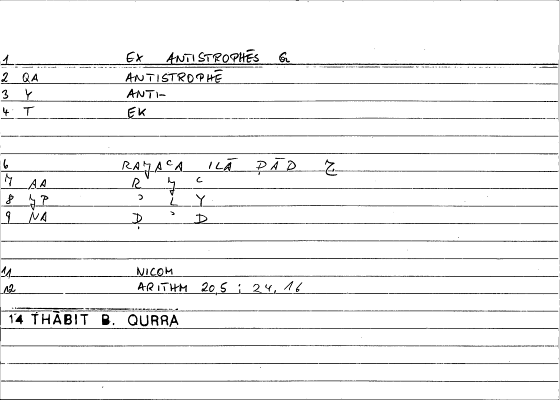 1 EX ANTISTROPHĒS G
2 QA ANTISTROPHĒ
3 Y ANTI-
4 T EK
6 RAJAʿA ILĀ ḌĀD
7 AA R J ʿ
8 JP ʾ L Y
9 NA Ḍ ʾ D
11 NICOM
12 ARITHM 20,5 ; 24,16
14 THĀBIT B. QURRA